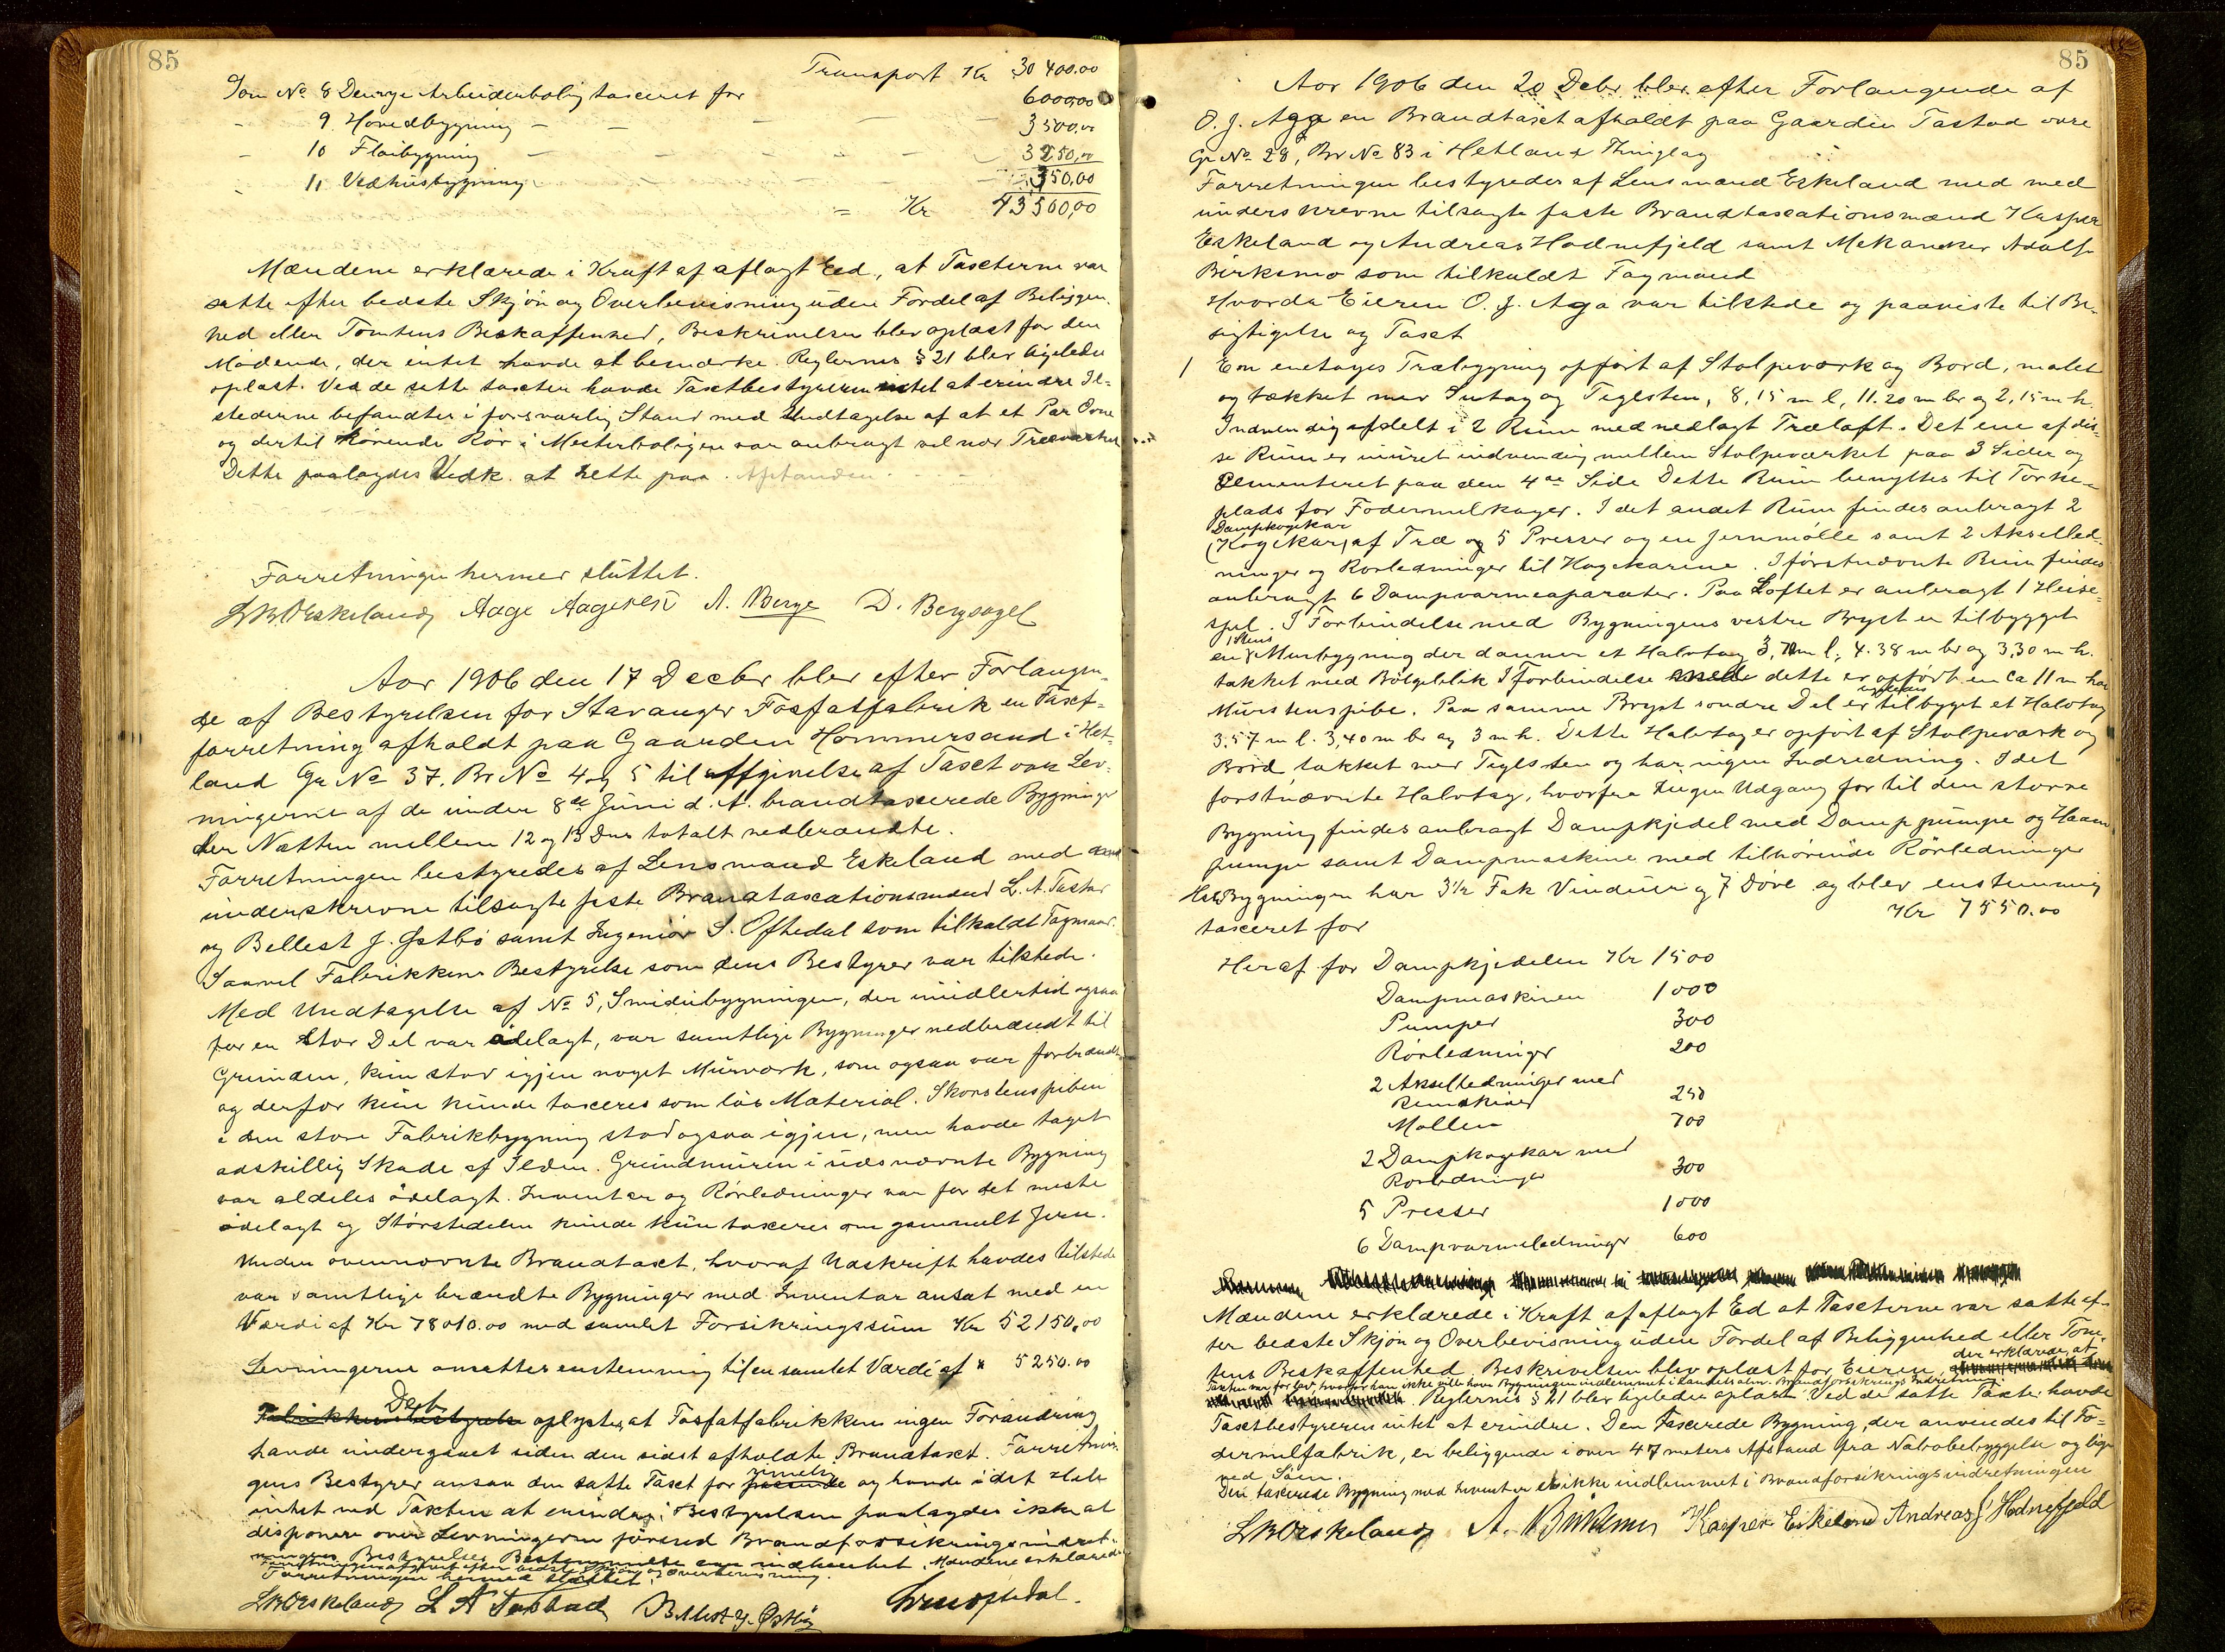 85
Transport Kr 30400.00
Som No 8 Arbeiderbolig taxeret for 6000,00
- 9. Hovedbygning - - - - 3500,00
- 10 Fløibygning - - - - 3250,00
11 Vedhusbygning - - - 350,00
= Kr 43500,00
Mændene erklærede i Kraft af aflagt Eed, at Taxterne var
satte efter bedste Skjön og Overbevisning uden Fordel af Beliggen-
hed eller Tomtens Beskaffenhed, Beskrivelsen blev oplæst for den
Mödende, der intet havde at bemærke. Reglernes § 21 blev ligeledes
oplæst. Ved de satte taxter havde Taxtbestyreren intet at erindre Il-
stederne befandtes i forsvarlig Stand med Undtagelse af at et Par Ovne
og dertil hörende Rör i Mesterboligen var anbragt vel nær Træværket
Dette paalagdes Vedk. at rette paa.
Forretningen hermed sluttet.
LWEskeland Aage Aagesen A. Berge D. Bergsagel
Aar 1906 den 17 Decbr blev efter Forlangen-
de af Bestyrelsen for Stavanger Fosfatfabrik en Taxt-
forretning afholdt paa Gaarden Hommersand i Het-
land Gr No 37. Br No 4 og 5 til Afgivelse af Taxt over Lev-
ningerne af de under 8de Juni d. A. brandtaxerede Bygninger
der Natten mellem 12 og 13 Dns totalt nedbrændte.
Forretningen bestyredes af Lensmand Eskeland med
underskrevne tilsagte faste Brandtaxationsmænd L. A. Tastad
og Bellest J. Østbö samt Ingeniör S. Oftedal som tilkaldt Fagmand.
Saavel Fabrikkens Bestyrelse som dens Bestyrer var tilstede.
Med Undtagelse af No 5, Smidiebygningen, der imidlertid ogsaa
for en stor Del var ödelagt, var samtlige Bygninger nedbrændt til
Grunden, kun stod igjen noget Murværk, som ogsaa var forbrændt
og derfor kun kunde taxeres som lös Material. Skorstenspiben
i den store Fabrikbygning stod ogsaa igjen, men havde taget
adskillig Skade af Ilden. Grundmuren i nævnte Bygning
var aldeles ödelagt. Inventar og Rörledninger var for det meste
ödelagt og Störstedelen kunde kun taxeres om gammelt Jern.
Under ovennævnte Brandtaxt, hvoraf Udskrift havdes tilstede
var samtlige brændte Bygninger med Inventar ansat med en
Værdi af Kr 78010.00 med samlet Forsikringssum Kr 52150,00
Levningerne ansattes enstemmig til en samlet Værdi af " 5250.00
oplystes, at Fosfatfabrikken ingen Forandring
havde undergaaet siden den sidst afholdte Brandtaxt. Forretnin-
gens Bestyrer ansaa den satte Taxt for rimelig og havde i det Hele
intet ved Taxten at erindre. Bestyrelsen paalagdes ikke at
disponere over Levningerne förend Brandforsikringsindret-
ningens Bestyrelses Bestemmelse var indhentet. Mændene erklærede
Forretningen afgivet efter bedste Skjön og Overbevisning.
Forretningen hermed sluttet.
LWEskeland L A Tastad Bellest J. Østbö
85
Aar 1906 den 20 Debr blev efter Forlangende af
O. J. Aga en Brandtaxt afholdt paa Gaarden Tastad övre
Gr No 28, Br No 83 i Hetland Thinglag
Forretningen bestyredes af Lensmand Eskeland med med
underskrevne tilsagte faste Brandtaxationsmænd Kasper
Eskeland og Andreas Hodnefjeld samt Mekaniker Adolf
Birksmo som tilkaldt Fagmand
Hvorda Eieren O. J. Aga var tilstede og paaviste til Be-
sigtigelse og Taxt
1 En enetages Træbygning opfört af Stolpeværk og Bord, malet
og tækket med Sutag og Teglsten, 8,15 m l, 11.20 m br og 2,15 m h.
Indvendig afdelt i 2 Rum med nedlagt Træloft. Det ene af dis-
se Rum er muret indvendig mellem Stolpeværket paa 3 Sider og
Cementeret paa den 4de Side Dette Rum benyttes til Törke-
plads for Fodermelkager. I det andet Rum findes anbragt 2
Dampkogekar
(Kogekar) af Træ og 5 Presser og en Jernmölle samt 2 Aksselled-
ninger og Rörledninger til Kogekarene. I förstnævnte Rum findes
anbragt 6 Dampvarmeaparater. Paa Loftet er anbragt 1 Heise-
spel. I Forbindelse med Bygningens vestre Bryst er tilbygget
1 Stens
en Murbygning der danner et Halvtag 3,70 m l, 4.38 m br og 3,30 m h.
tækket med Bölgeblik I forbindelse med dette er opfört en ca 11 m höi
Murstenspibe. Paa samme Bryst söndre Del er ligeledes tilbyget et Halvtag
3,57 m l. 3,40 m br og 3 m h. Dette Halvtag er opfört af Stolpeværk og
Bord, tækket med Teglsten og har ingen Indredning. I det
förstnævnte Halvtag, hvorfra ingen Udgang för til den större
Bygning findes anbragt Dampkjedel med Damppumpe og Haand
pumpe samt Dampmaskine med tilhörende Rörledninger
Hele Bygningen har 3½ Fak Vinduer og 7 Döre og blev enstemmig
taxeret for Kr 7550.00
Heraf for Dampkjedelen Kr 1500
Dampmaskinen 1000
Pumper 300
Rörledninger 200
2 Akselledninger med
Remskiver 250
Möllen 700
2 Dampkogekar med
Rörledninger 300
5 Presser 1000
6 Dampvarmeledninger 600
Mændene erklærede i Kraft af aflagt Ed at Taxterne var satte ef-
ter bedste Skjön og Overbevisning uden Fordel af Beliggenhed eller Tom-
tens Beskaffenhed. Beskrivelsen blev oplæst for Eieren, der erklærede, at
Taxten var for lav, hvorfor han ikke vilde have Bygningen indlemmet i Landets alm. Brandforsikrings Indretning.
Reglernes § 21 blev ligeledes oplæst. Ved de satte Taxter havde
Taxtbestyreren intet at erindre. Den taxerede Bygning, der anvendes til Fo-
dermelfabrik, er beliggende i over 47 meters Afstand fra Nabobebyggelse og lige
ved Söen.
Den taxerede Bygning med Inventar er ikke indlemmet i Brandforsikringsindretningen
LWEskeland A. Birksmo Kasper Eskeland Andreas J Hodnefjeld